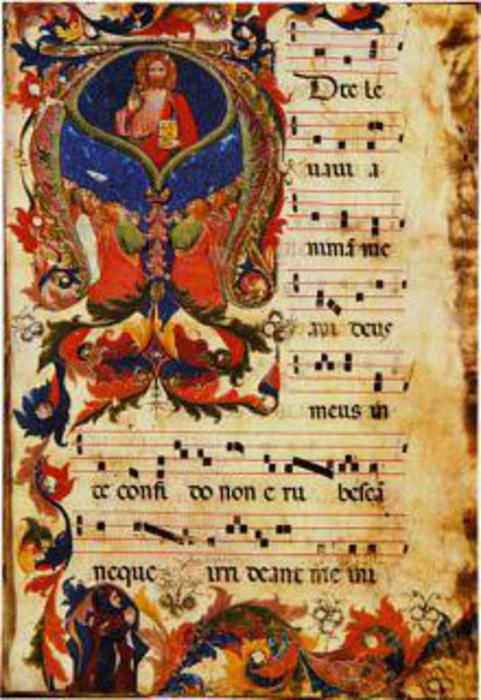 AD te le
uaui a
nimā me
am deus
meus in
te confi do non e ru bescā
neque irri deant me ini